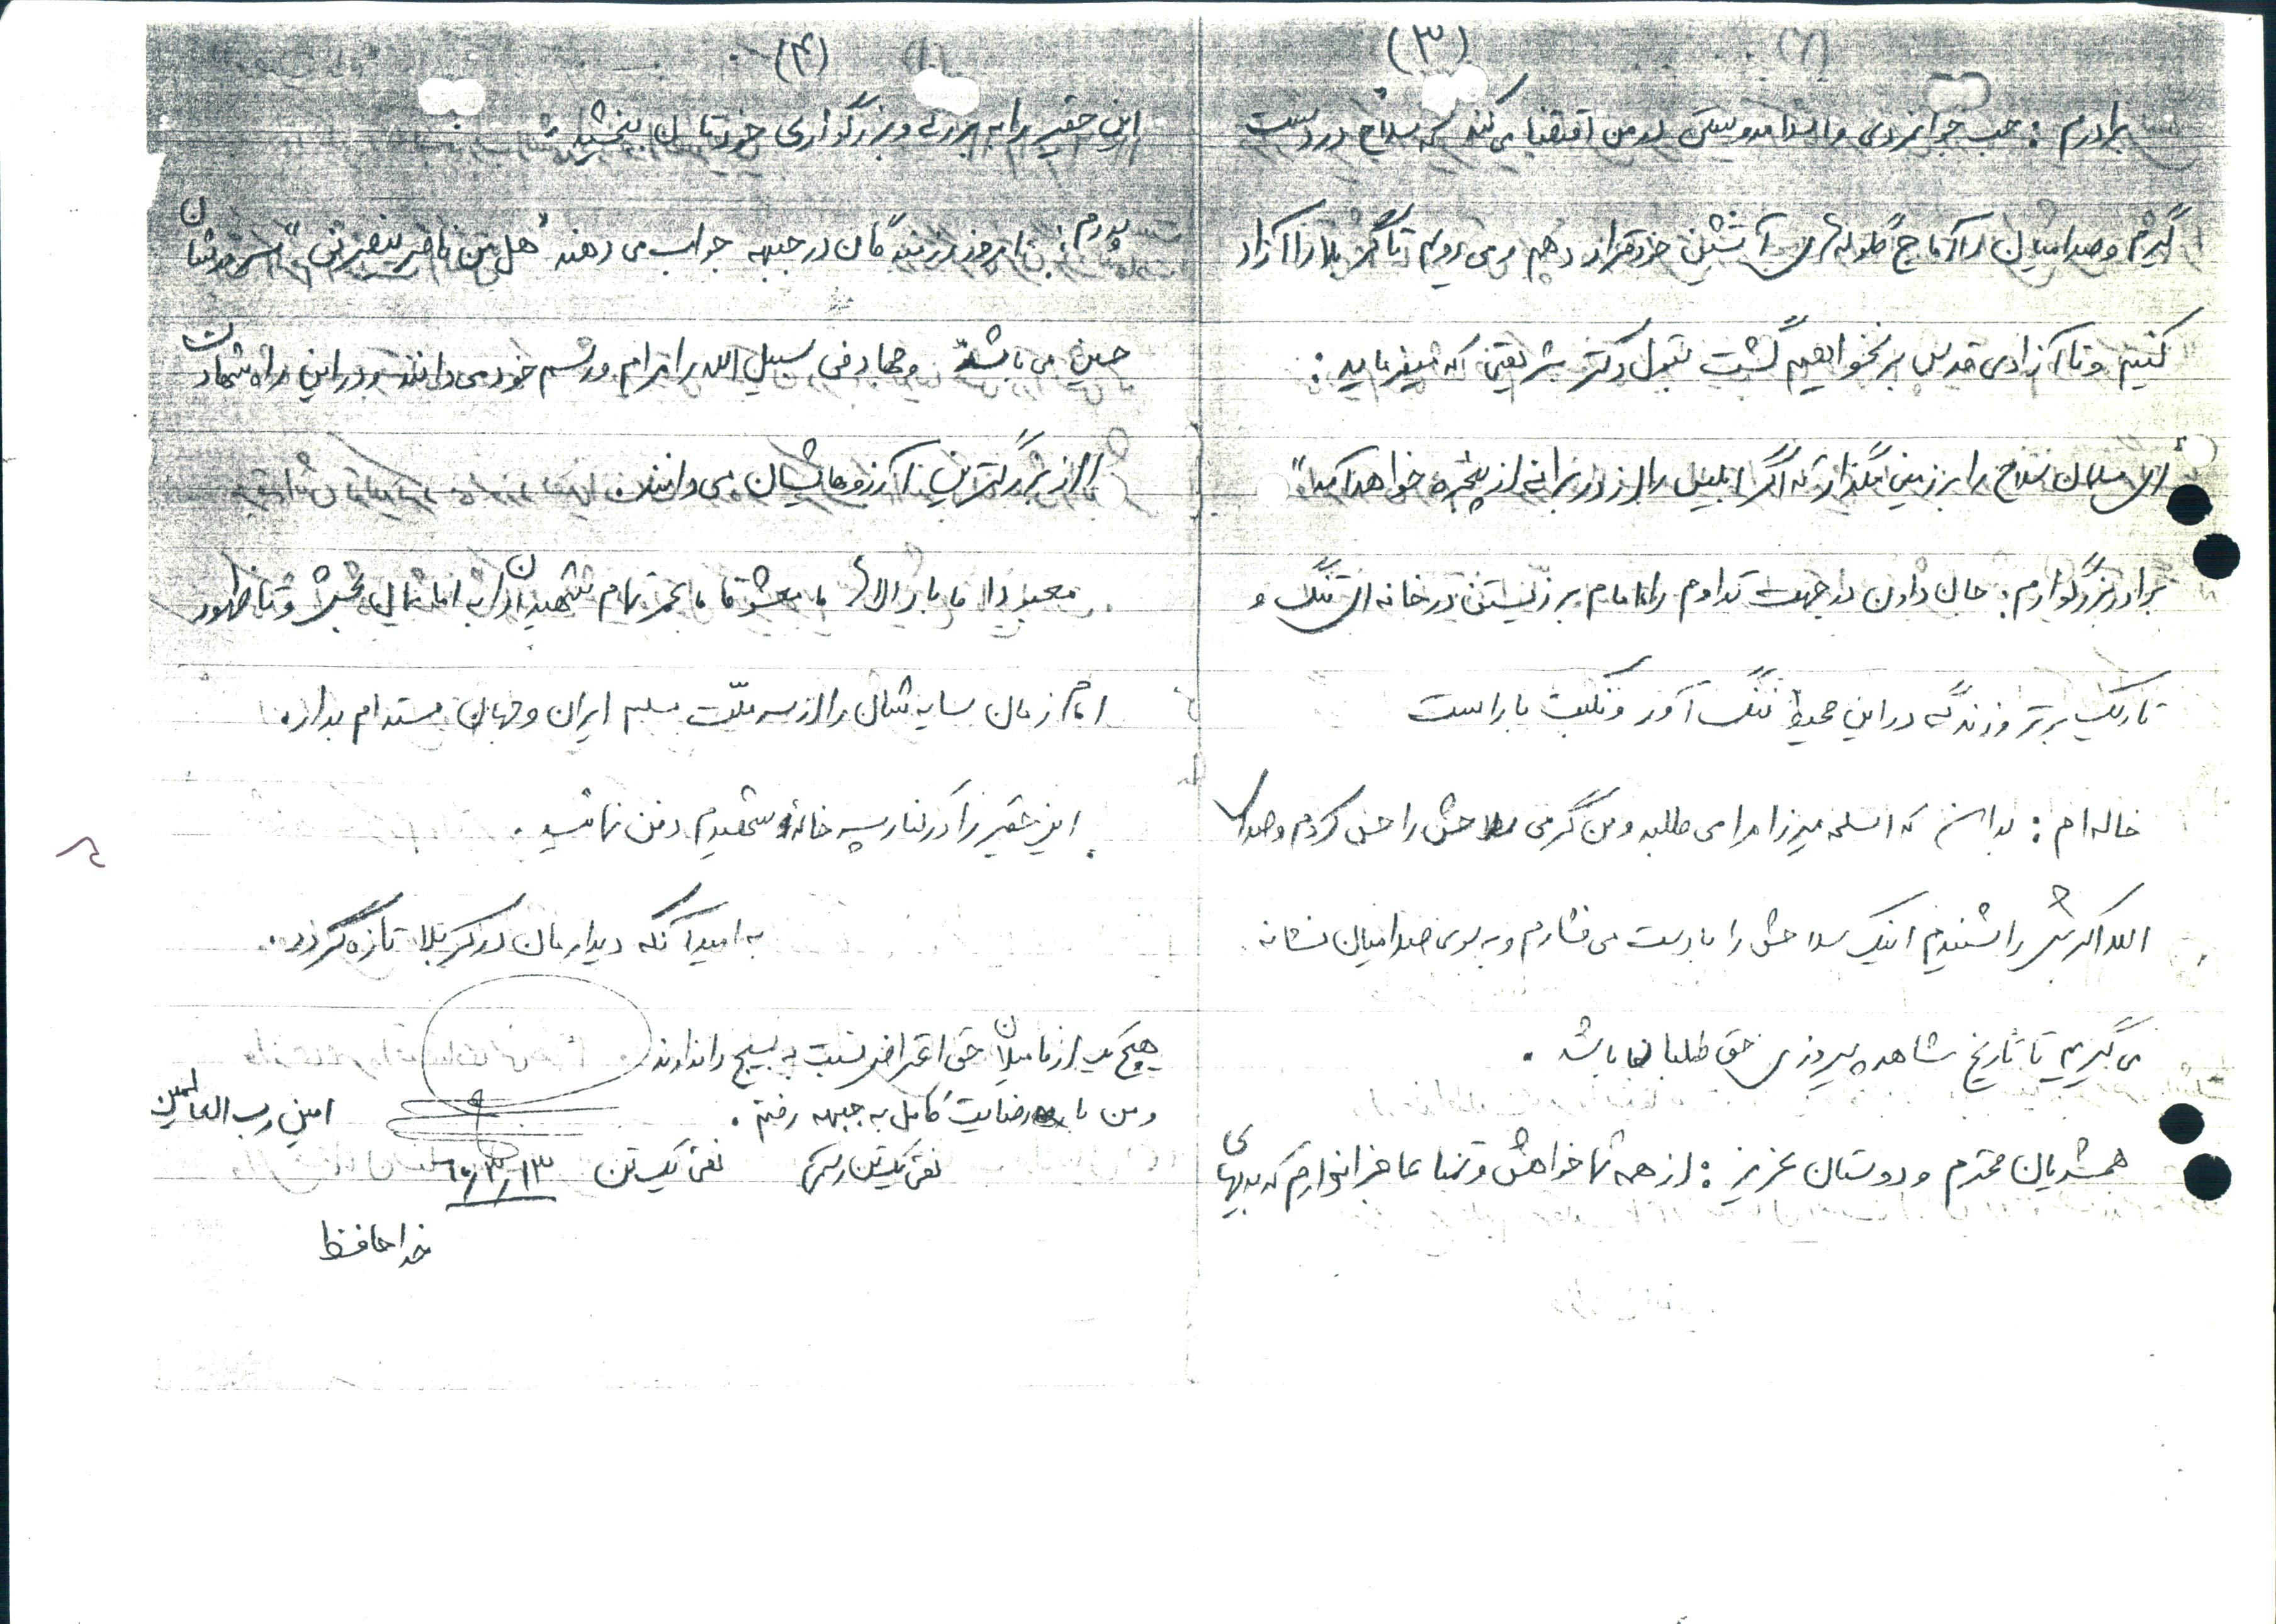 (۳)
برادرم : حب جوانمردی و انسا مدوستی در من اقتضا می کند که سلاح در دست
گیرم و صدامیان را آماج گلوله های آتشین خود قرار دهم و می رویم تا کربلا را آزاد
کنیم و تا آزادی قدس بر نخواهیم گشت بقول دکتر شریعتی که میفرماید :
"ای مسلمان سلاح را بر زمین مگذار که اگر ابلیس را از در برانی از پنجره خواهد آمد"
برادر بزرگوارم : جان دادن در جهت تداوم راه امام بر زیستن در خانه ای تنگ و
تاریک برتر و زندگی در این محیط ننگ آور و نکبت بار است
خاله ام : بدان که اسلحه میرزا مرا می طلبد و من گرمی سلاحش را حس کردم و صدای
الله اکبرش را شنیدم اینک سلاحش را با دست می فشارم و به سوی صدامیان نشانه
می گیریم تا تاریخ شاهد پیروزی حق طلبان باشد .
همشهریان محترم و دوستان عزیز : از همه شما خواهش و تمنا عاجزانه دارم که بدیهای
(۴)
این حقیر را به بزرگی و بزرگواری خودتان ببخشید .
پدرم : امروز رزمندگان در جبهه جواب می دهند "هل من ناصر ینصرنی" سرورشان
حسین می باشند و جهاد فی سبیل الله را مرام و رسم خود می دانند و در این راه شهادت
را از بزرگترین آرزوهایشان می دانند
معبودا ما بار الها ما معشوقا ما عمر تمام شهیدان را به امامان ببخش و تا ظهور
امام زمان سایه شان را از سر ملّت مسلم ایران و جهان مستدام بدار .
این حقیر را در کنار پسر خالۀ شهیدم دفن نمائید .
به امید آنکه دیدارمان در کربلا تازه گردد .
هیچ یک از فامیلان حق اعتراض نسبت به بسیج را ندارند
و من با رضایت کامل به جبهه رفتم .
امین رب العالمین
نقی یکتن
۶۰٫۳٫۱۳
خداحافظ